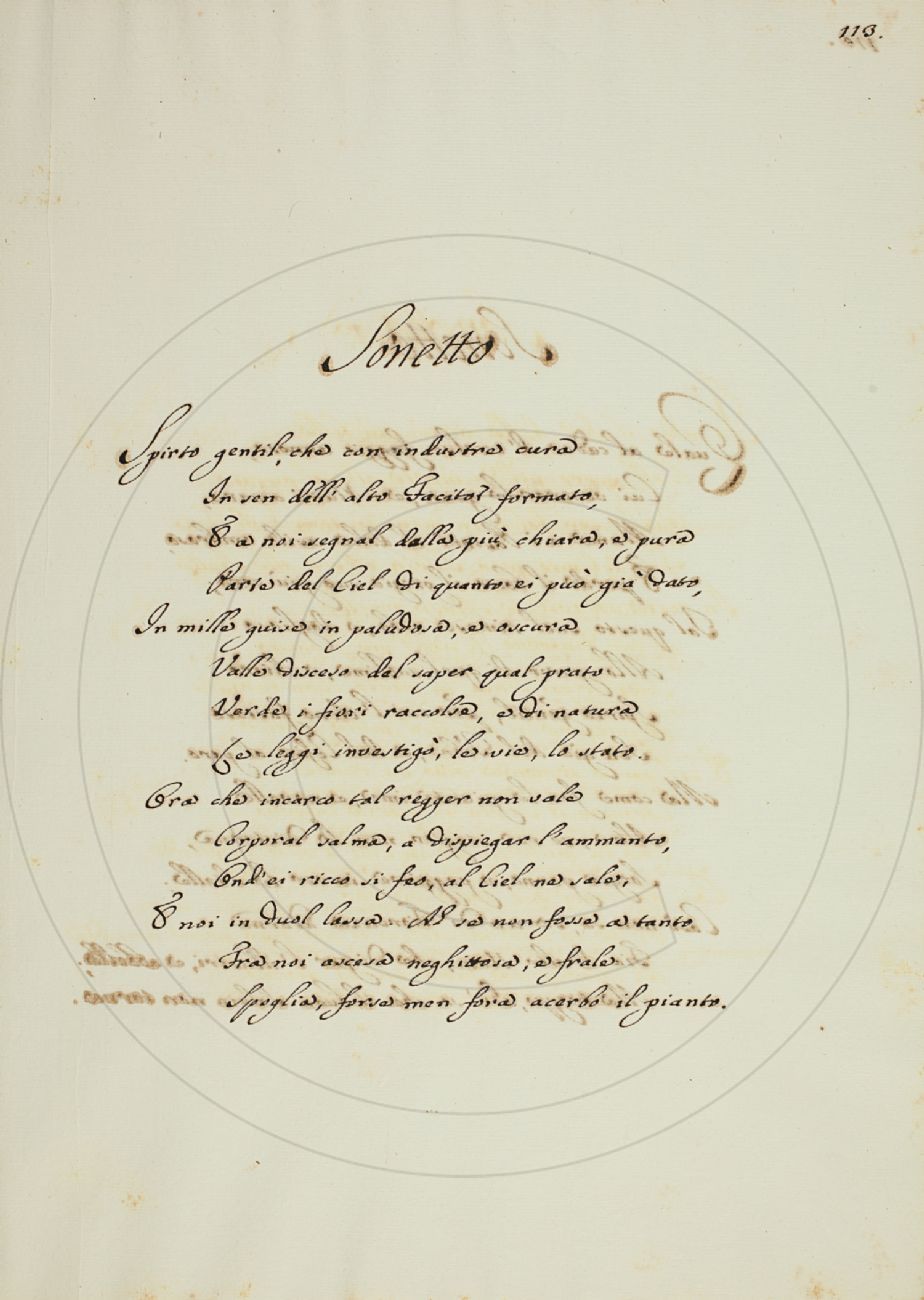 113.
Sonetto
Spirto gentil, che con industre cura
In sen dell' alto Facitor formato,
E a noi segnal dalla più chiara, e pura
Parte del Ciel di quanto ei può già dato,
In mille guise in paludosa, e oscura
Valle disceso del saper qual prato
Verde i fiori raccolse, e di natura
Le leggi investigò, le vie, lo stato.
Ora che incarco tal regger non vale
Corporal salma, a dispiegar l'ammanto,
Ond' ei ricco si feo, al Ciel ne sale,
E noi in duol lassa. Ah se non fosse a tanto
Fra noi ascesa neghittosa, e frale
Spoglia, forse men fora acerbo il pianto.